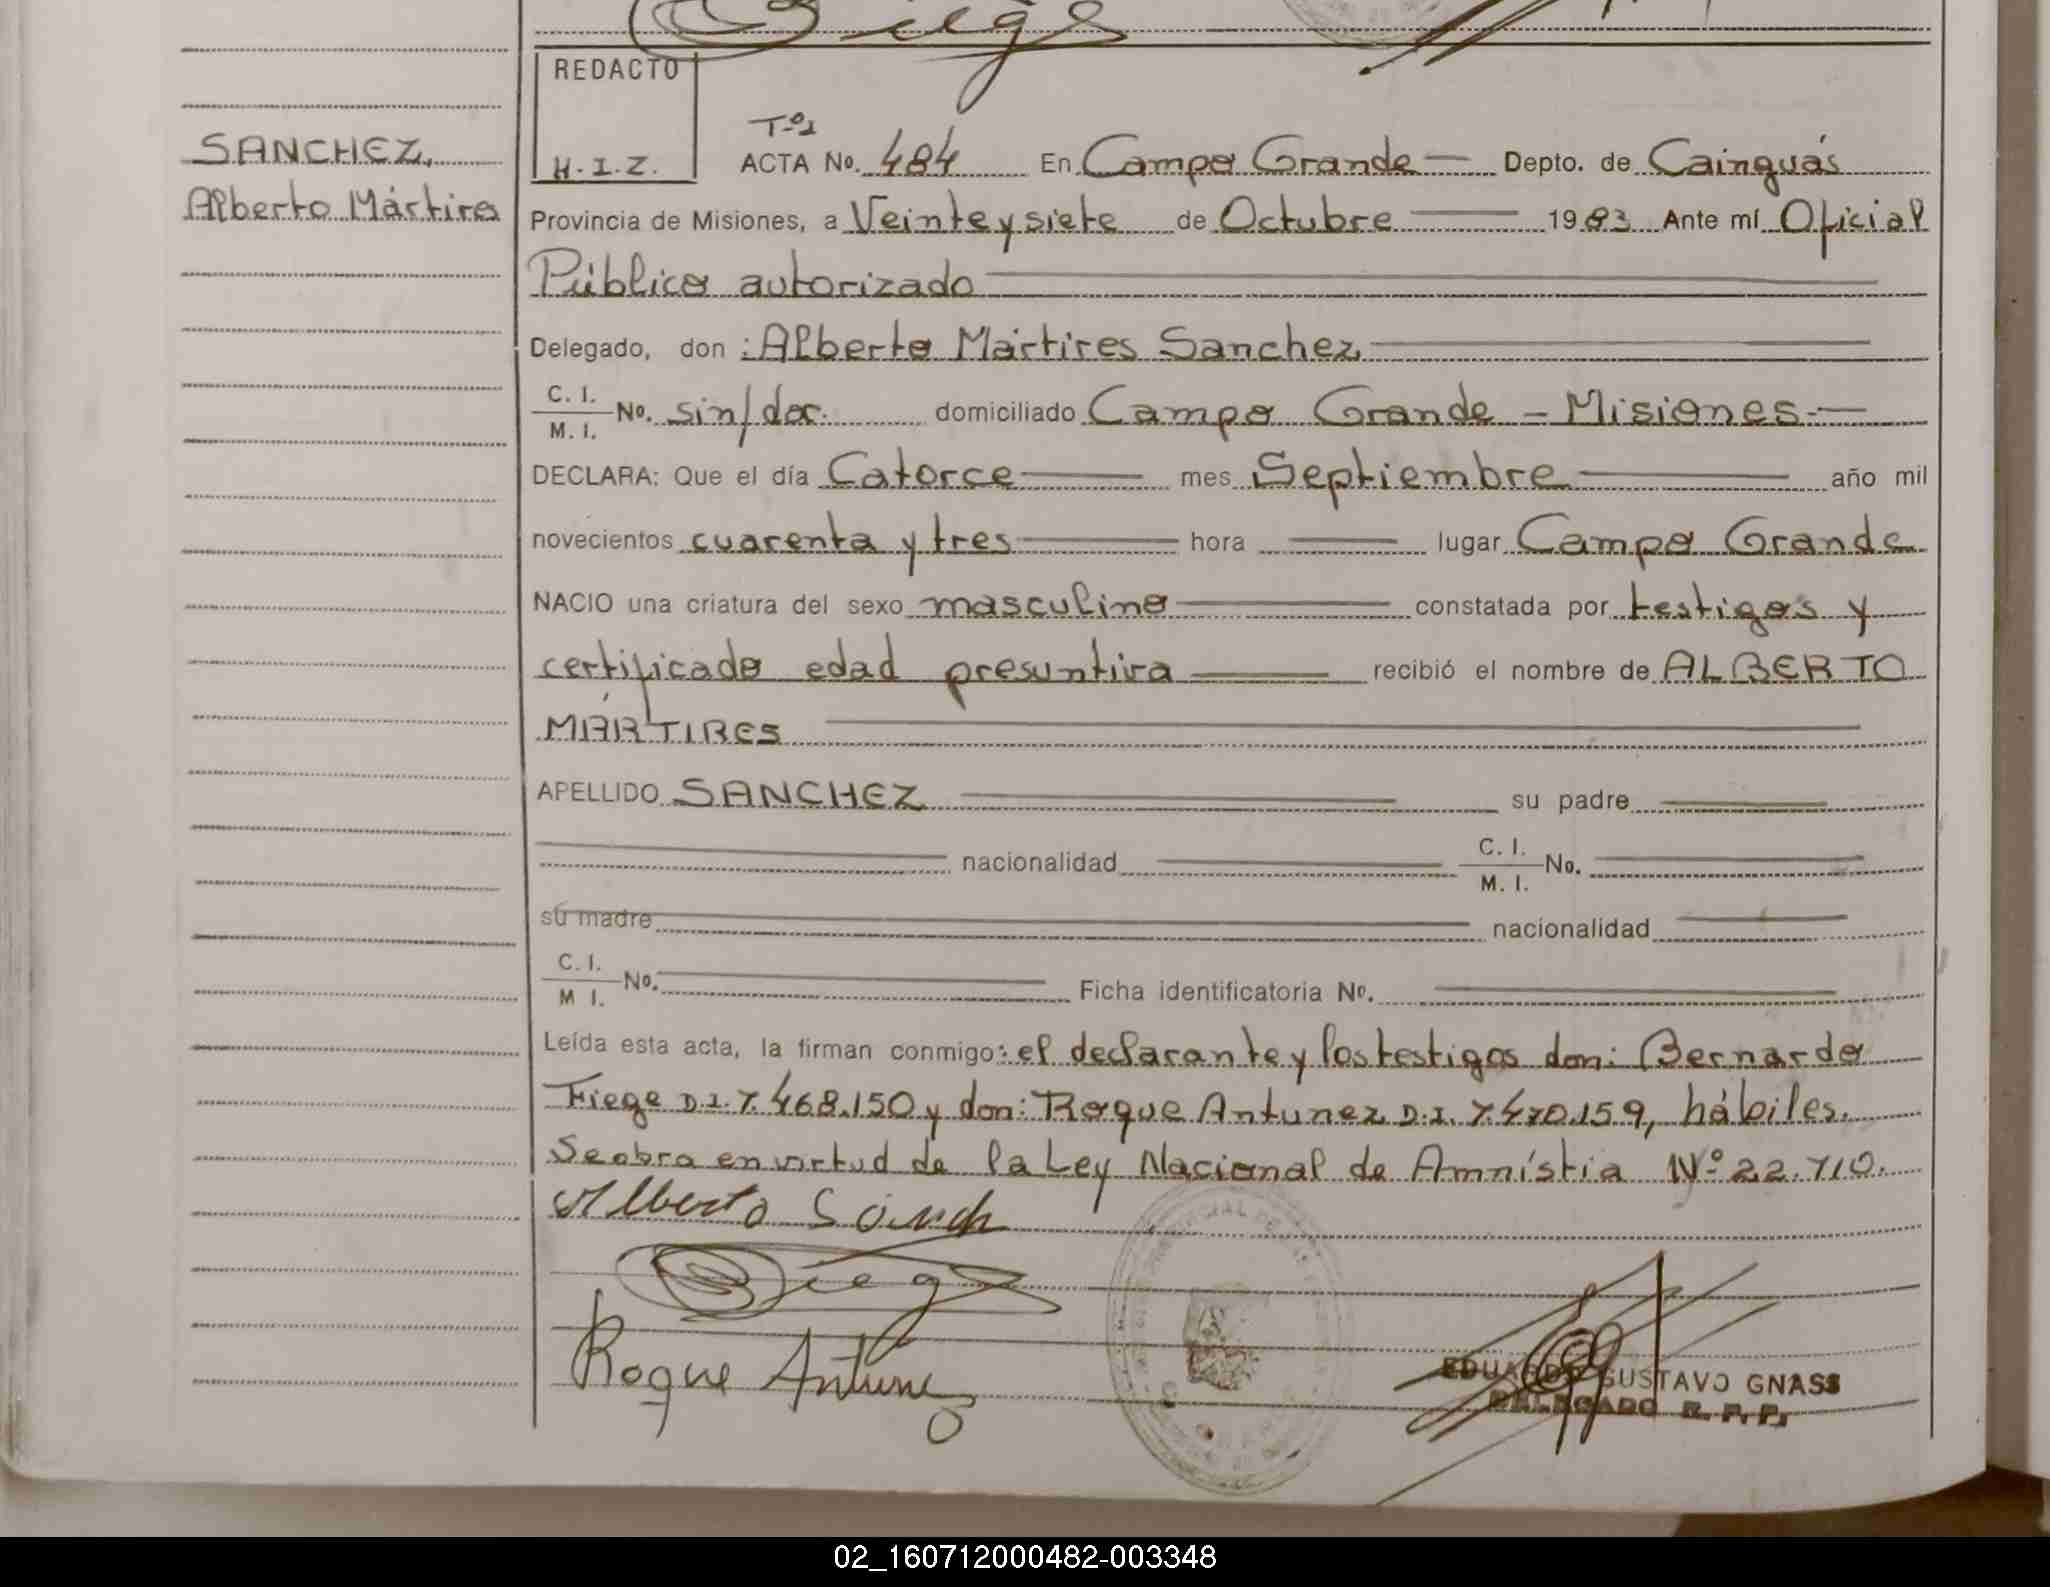 REDACTO
H.I.Z.
SANCHEZ,
Alberto Mártires
Tº1
ACTA No. 484 En Campo Grande Depto. de Cainguás
Provincia de Misiones, a Veinte y siete de Octubre 1983 Ante mí Oficial
Público autorizado
Delegado, don : Alberto Mártires Sanchez
C. I. / M. I. No. sin/doc. domiciliado Campo Grande - Misiones.-
DECLARA: Que el día Catorce mes Septiembre año mil
novecientos cuarenta y tres hora lugar Campo Grande
NACIO una criatura del sexo masculino constatada por testigos y
certificado edad presuntiva recibió el nombre de ALBERTO
MÁRTIRES
APELLIDO SANCHEZ su padre
nacionalidad C. I. / M. I. No.
su madre nacionalidad
C. I. / M I. No. Ficha identificatoria No.
Leída esta acta, la firman conmigo: el declarante y los testigos don: Bernardo
Fiege D.I. 7.468.150 y don: Roque Antunez D.I. 7.470.159, hábiles.
Se obra en virtud de la Ley Nacional de Amnístia Nº 22.710.
Alberto Sánch
Roque Antunez
EDUARDO GUSTAVO GNASS
DELEGADO R. P. P.
02_160712000482-003348